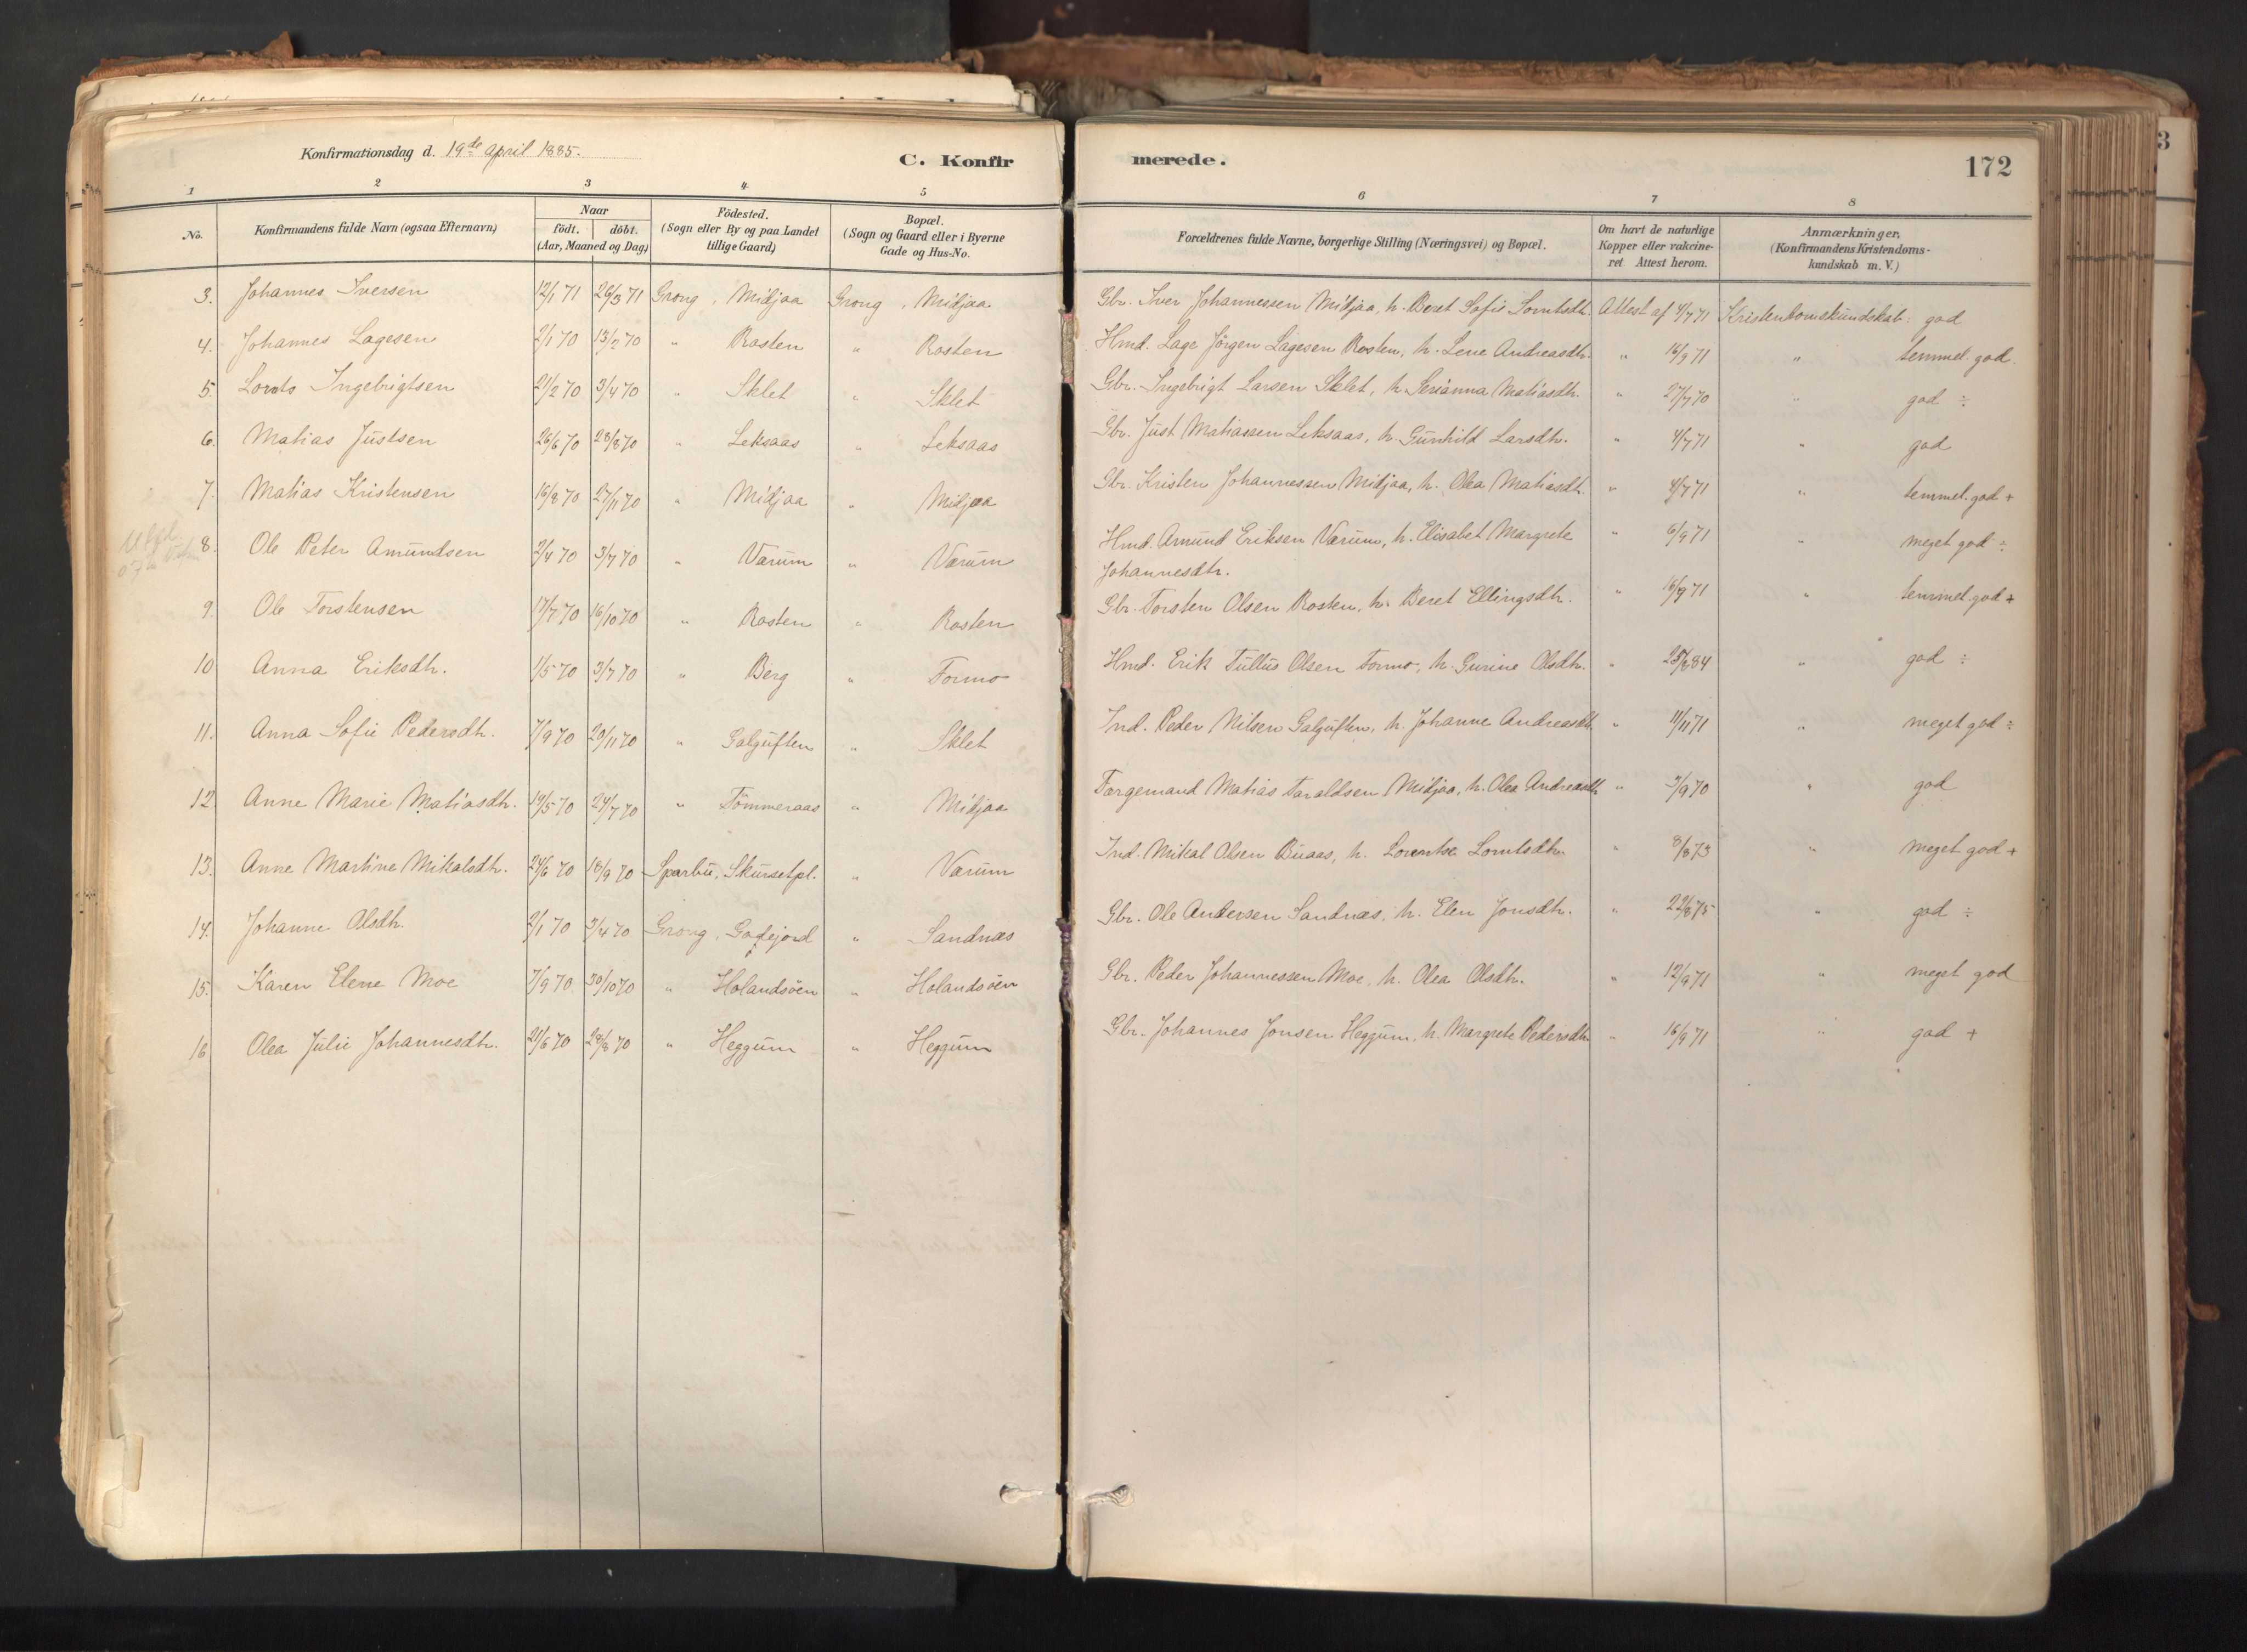 Konfirmationsdag d. 19de April 1885.
C. Konfirmerede.
172
1 2 3 4 5 6 7 8
No.
Konfirmandens fulde Navn (ogsaa Efternavn)
Naar
födt. döbt.
(Aar, Maaned og Dag)
Födested.
(Sogn eller By og paa Landet
tillige Gaard)
Bopæl.
(Sogn og Gaard eller i Byerne
Gade og Hus-No.
Forældrenes fulde Navne, borgerlige Stilling (Næringsvei) og Bopæl.
Om havt de naturlige
Kopper eller vakcine-
ret Attest herom.
Anmærkninger.
(Konfirmandens Kristendoms-
kundskab m. V.)
3. Johannes Iversen 12/1 71 26/3 71 Grong, Midjaa Grong, Midjaa Gbr. Iver Johannessen Midjaa, h. Beret Sofie Lorntsdtr. Attest af 4/7 71 Kristendomskundskab: god
4. Johannes Lagesen 2/1 70 13/2 70 " Rosten " Rosten Hmd. Lage Jörgen Lagesen Rosten, h. Lene Andreasdtr. " 16/9 71 " temmel. god.
5. Lornts Ingebrigtsen 21/2 70 3/4 70 " Sklet " Sklet Gbr. Ingebrigt Larsen Sklet, h. Serianna Matiasdtr. " 27/7 70 " god ÷
6. Matias Justsen 26/6 70 28/8 70 " Leksaas " Leksaas Gbr. Just Matiassen Leksaas, h. Gunhild Larsdtr. " 4/7 71 " god
7. Matias Kristensen 16/8 70 27/11 70 " Midjaa " Midjaa Gbr. Kristen Johannessen Midjaa, h. Olea Matiasdtr. " 4/7 71 " temmel. god +
8. Ole Peter Amundsen 2/4 70 3/7 70 " Værum " Værum Hmd. Amund Eriksen Værum, h. Elisabet Margrete " 6/9 71 " meget god ÷
Johannesdtr.
9. Ole Torstensen 17/7 70 16/10 70 " Rosten " Rosten Gbr. Torsten Olsen Rosten, h. Beret Ellingsdtr. " 16/9 71 " temmel. god +
10 Anna Eriksdtr. 1/5 70 3/7 70 " Berg " Formo Hmd. Erik Tullus Olsen Formo, h. Gurine Olsdtr. " 84 " god ÷
11. Anna Sofie Pedersdtr. 7/9 70 20/11 70 " Galguften " Sklet Ind. Peder Nilsen Galguften, h. Johanne Andreasdt. " 11/11 71 " meget god ÷
12. Anne Marie Matiasdtr. 19/5 70 24/7 70 " Tömmeraas " Midjaa Forgemand Matias Taraldsen Midjaa, h. Olea Andreasdtr " 3/9 70 " god
13. Anne Martine Mikalsdtr. 24/6 70 18/9 70 Sparbu, Skursetpl. " Værum Ind. Mikal Olsen Buaas, h. Lorentse Lorntsdtr. " 8/8 73 " meget god +
14. Johanne Olsdtr. 2/1 70 3/4 70 Grong, Godejord " Sandnæs Gbr. Ole Andersen Sandnæs, h. Elen Jonsdtr. " 22/8 75 " god ÷
15. Karen Elene Moe 7/9 70 30/10 70 " Holandsöen " Holandsöen Gbr. Peder Johannessen Moe, h. Olea Olsdtr. " 12/9 71 " meget god
16 Olea Julie Johannesdtr. 21/6 70 28/8 70 " Heggum " Heggum Gbr. Johannes Jonsen Heggum, h. Margrete Pedersdtr. " 16/9 71 " god +